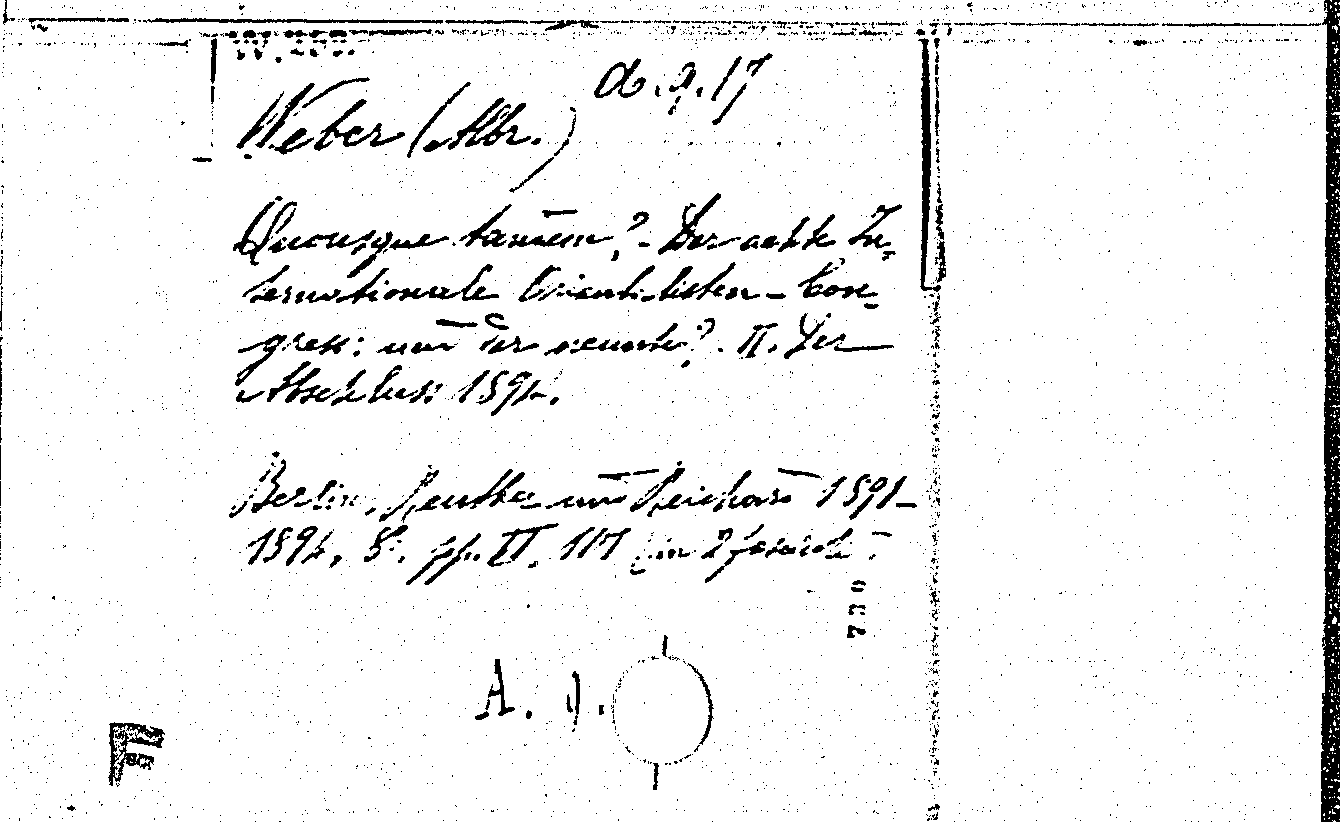 α.g.17
Weber (Albr.)
Quousque tandem? - Der achte In-
ternationale Orientalisten-Con-
gress: und der neunte?. II. Der
Abschluss 1892.
Berlin, Reuther und Reichard 1891-
1892, 8°. pp. II. 117 (in 2 fascicoli).
730
A. g.
BCR